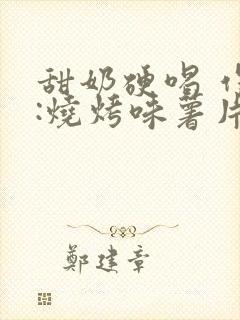 甜奶硬唱
:燒烤味薯片
鄭建章